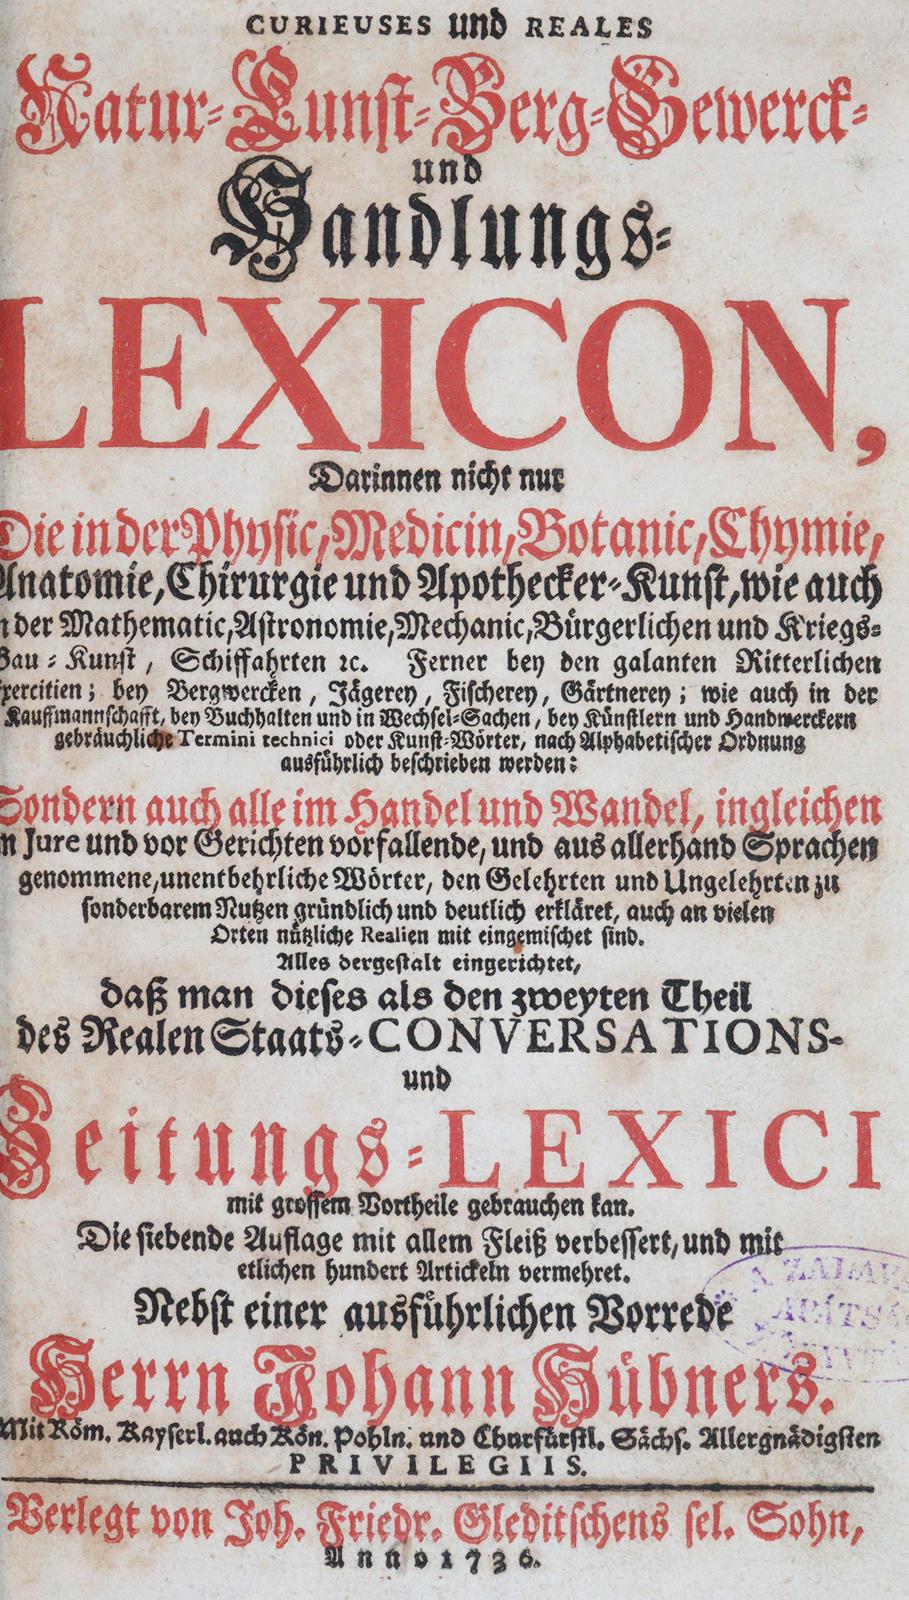 CURIEUSES und REALES
Natur-Kunst-Berg-Gewerck-
und
Handlungs-
LEXICON,
Darinnen nicht nur
Die in der Physic, Medicin, Botanic, Chymie,
Anatomie, Chirurgie und Apothecker-Kunst, wie auch
n der Mathematic, Astronomie, Mechanic, Bürgerlichen und Kriegs-
Bau-Kunst, Schiffahrten ꝛc. Ferner bey den galanten Ritterlichen
Exercitien; bey Bergwercken, Jägerey, Fischerey, Gärtnerey; wie auch in der
Kauffmannschafft, bey Buchhalten und in Wechsel-Sachen, bey Künstlern und Handwerckern
gebräuchliche Termini technici oder Kunst-Wörter, nach Alphabetischer Ordnung
ausführlich beschrieben werden:
Sondern auch alle im Handel und Wandel, ingleichen
in Jure und vor Gerichten vorfallende, und aus allerhand Sprachen
genommene, unentbehrliche Wörter, den Gelehrten und Ungelehrten zu
sonderbarem Nutzen gründlich und deutlich erkläret, auch an vielen
Orten nützliche Realien mit eingemischet sind.
Alles dergestalt eingerichtet,
daß man dieses als den zweyten Theil
des Realen Staats-CONVERSATIONS-
und
Zeitungs-LEXICI
mit grossem Vortheile gebrauchen kan.
Die siebende Auflage mit allem Fleiß verbessert, und mit
etlichen hundert Artickeln vermehret.
Nebst einer ausführlichen Vorrede
Herrn Johann Hübners.
Mit Röm. Kayserl. auch Kön. Pohln. und Churfürstl. Sächs. Allergnädigsten
PRIVILEGIIS.
Verlegt von Joh. Friedr. Gleditschens sel. Sohn,
Anno 1736.